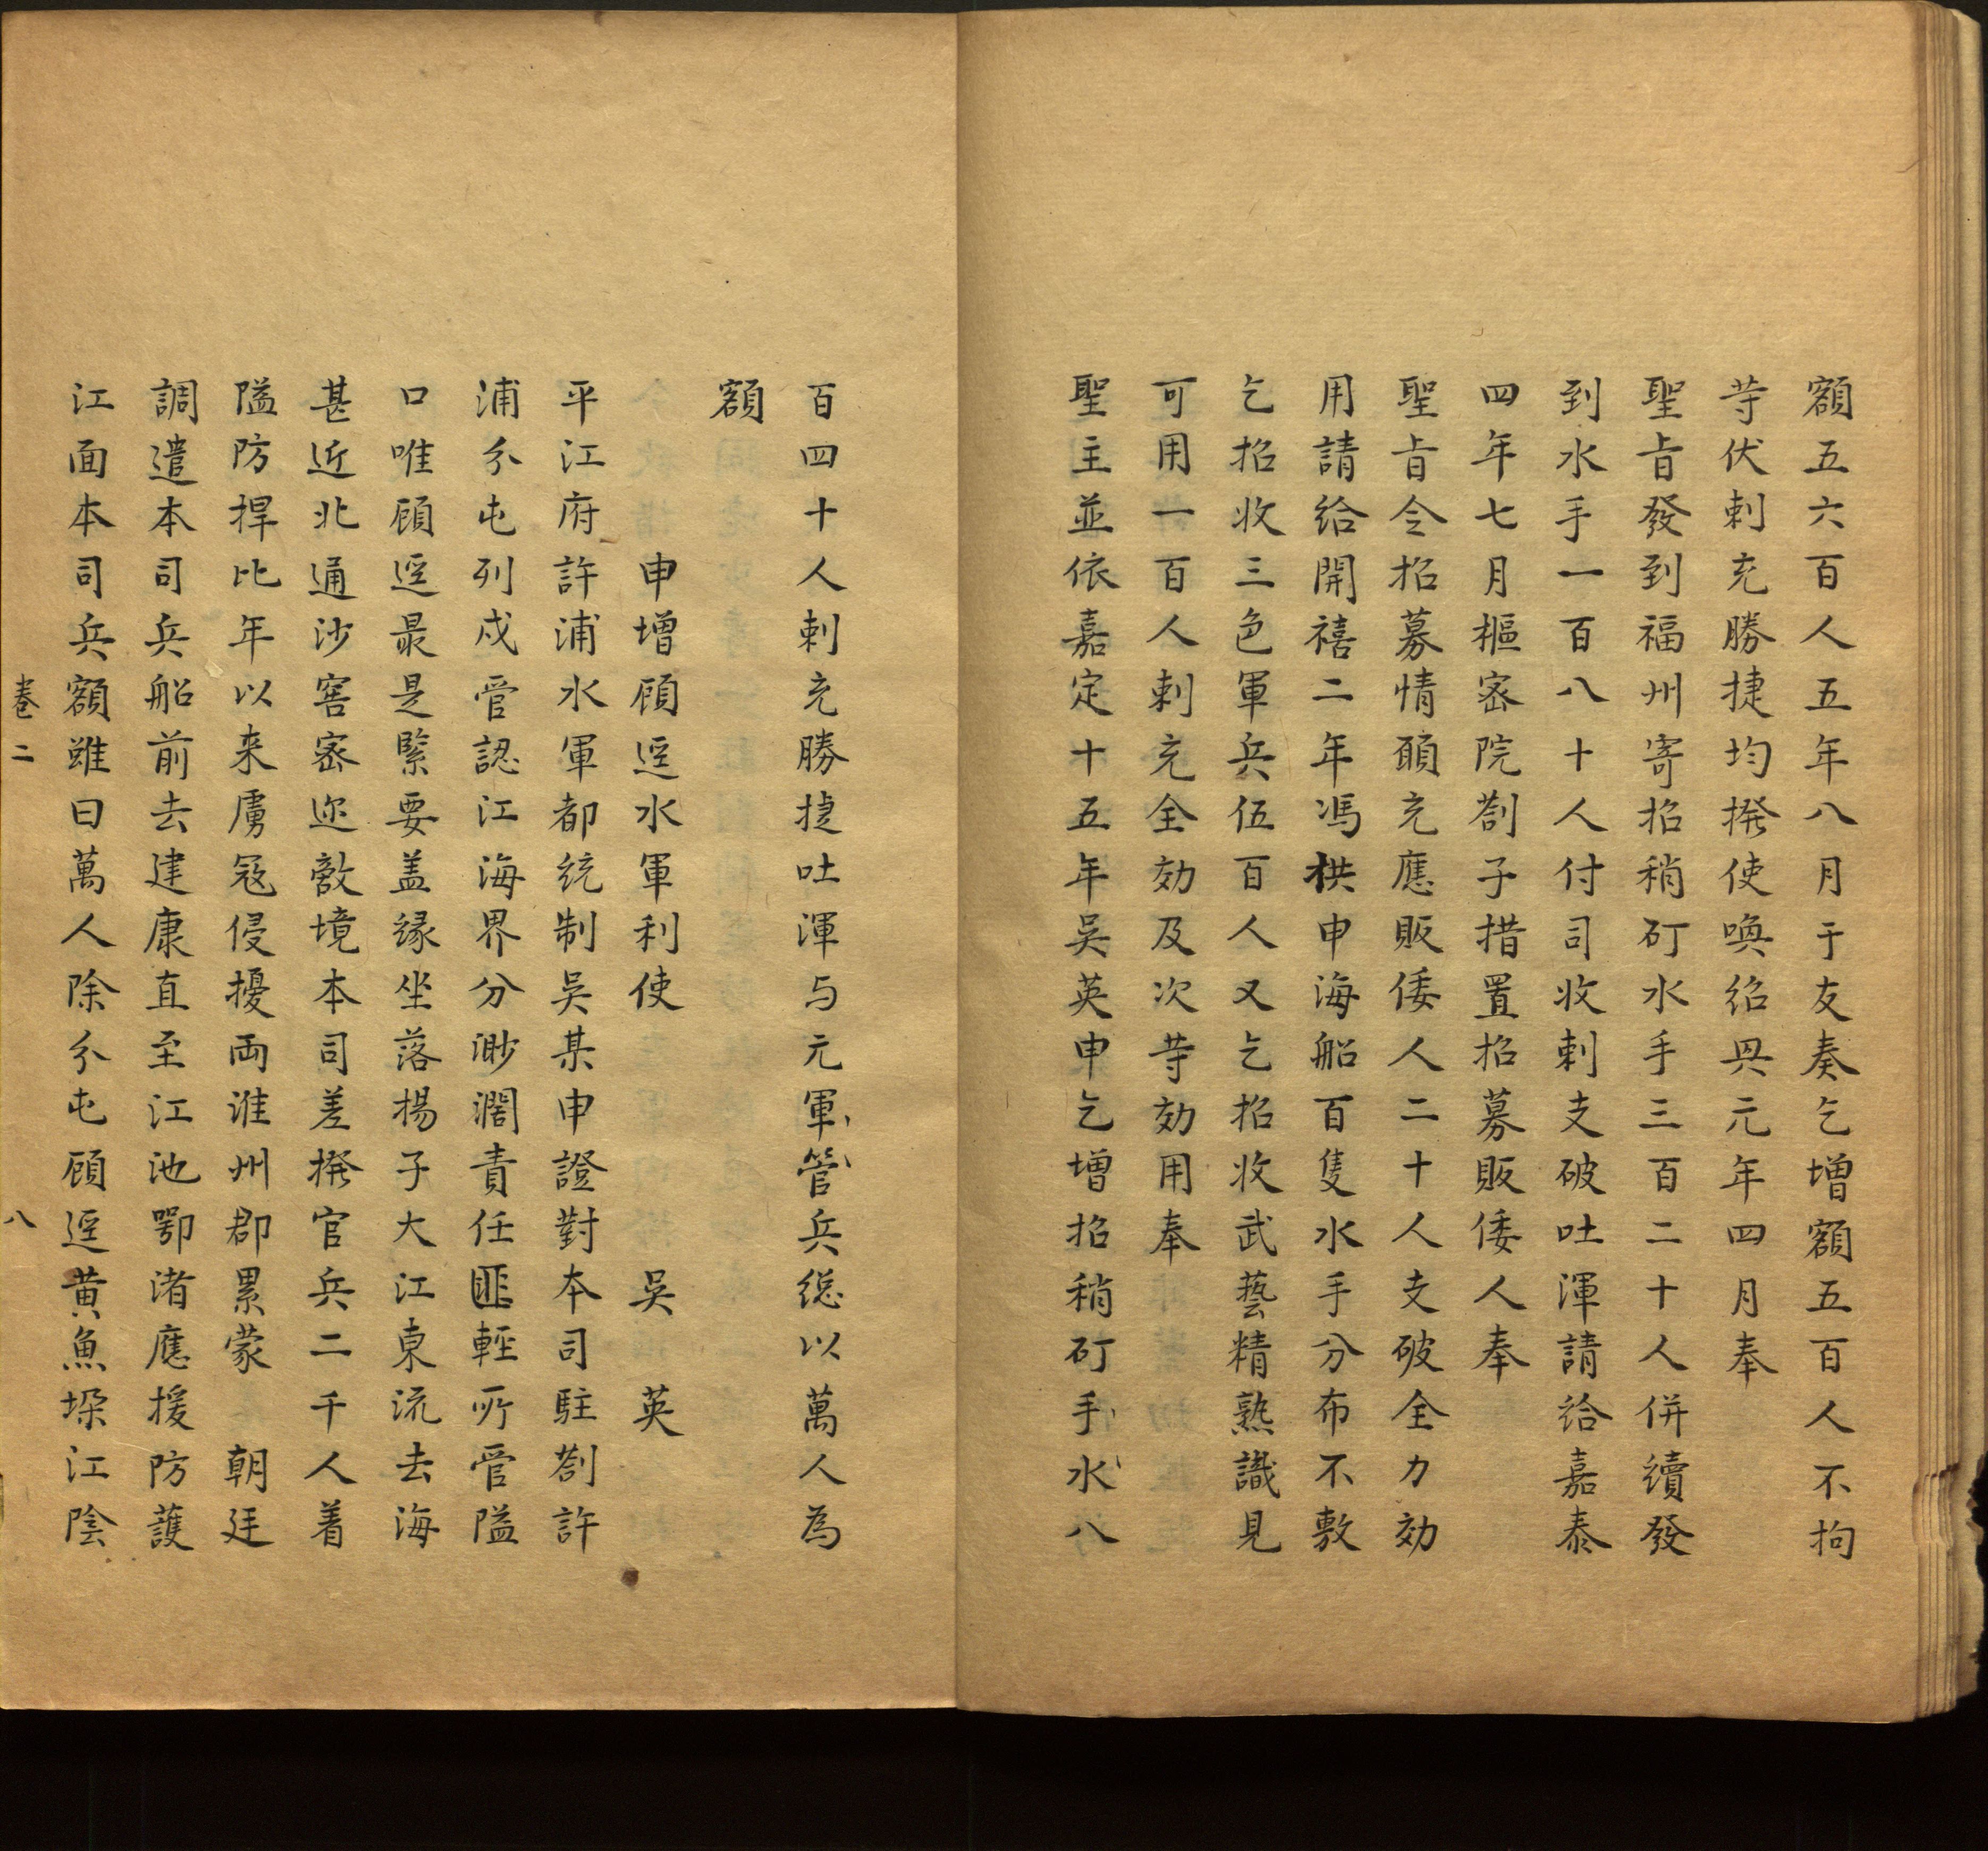 額五六百人五年八月于友奏乞增額五百人不拘
荨伏刺充勝捷均撥使喚紹興元年四月奉
聖旨發到福州寄招稍矴水手三百二十人併續發
到水手一百八十人付司收刺支破吐渾請給嘉泰
四年七月樞密院劄子措置招募販倭人奉
聖旨令招募情願充應販倭人二十人支破全力効
用請給開禧二年馮拱申海船百隻水手分布不敷
乞招收三色軍兵伍百人又乞招收武藝精熟識見
可用一百人刺充全効及次荨効用奉
聖主並依嘉定十五年吳英申乞增招稍矴手水八
百四十人刺充勝捷吐渾与元軍管兵総以萬人為
額
申增顧逕水軍利使 吳 英
平江府許浦水軍都統制吳某申證對本司駐劄許
浦分屯列戍管認江海界分渺濶責任匪輕所管隘
口唯顧逕最是緊要盖縁坐落揚子大江東流去海
甚近北通沙窖密迩敵境本司差撥官兵二千人着
隘防捍比年以来虜冦侵擾両淮州郡累蒙 朝廷
調遣本司兵船前去建康直至江池鄂渚應援防護
江面本司兵額雖曰萬人除分屯顧逕黄魚垜江陰
卷二 八